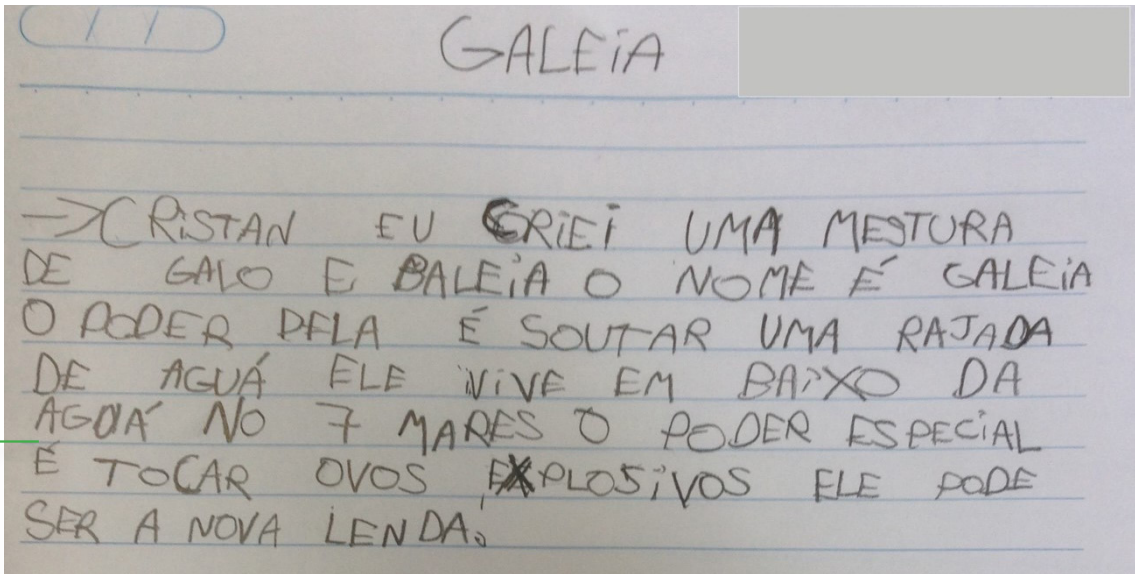 GALEIA
→CRISTAN EU CRIEI UMA MESTURA
DE GALO E BALEIA O NOME É GALEIA
O PODER DELA É SOUTAR UMA RAJADA
DE AGUÁ ELE VIVE EM BAIXO DA
AGUÁ NO 7 MARES O PODER ESPECIAL
É TOCAR OVOS EXPLOSIVOS ELE PODE
SER A NOVA LENDA.